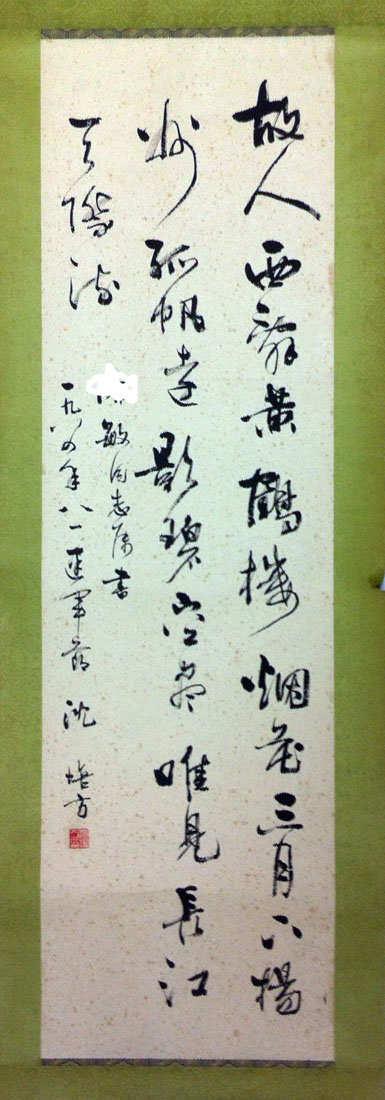 故人西辞黄鶴楼烟花三月下揚
州孤帆遠影碧空尽唯見長江
天際流
敏同志属書
一九八四年八一建軍節 沈培方